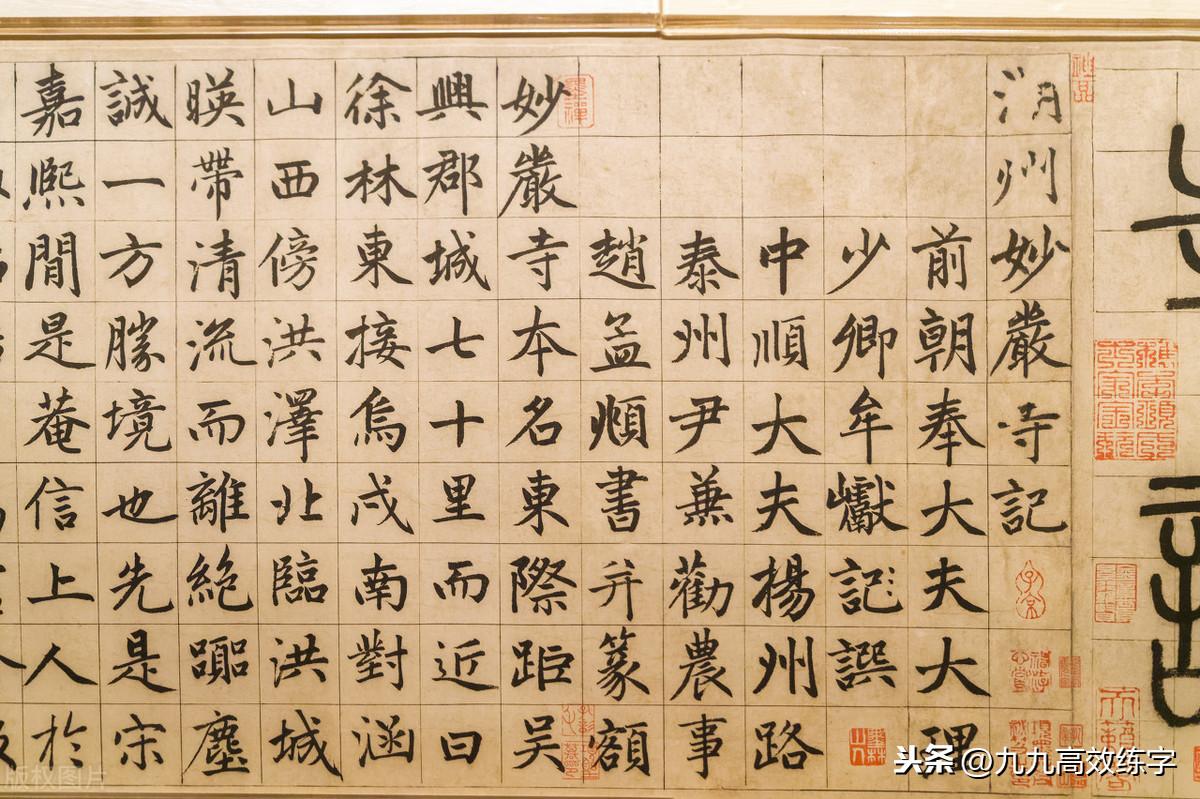 湖州妙嚴寺記
前朝奉大夫大理
少卿牟巘記譔
中順大夫楊州路
泰州尹兼勸農事
趙孟頫書并篆額
妙嚴寺本名東際距吳
興郡城七十里而近曰
徐林東接烏戍南對涵
山西傍洪澤北臨洪城
暎帶清流而離絕囂塵
誠一方勝境也先是宋
嘉熙間是菴信上人於
头条 @九九高效练字
版权图片